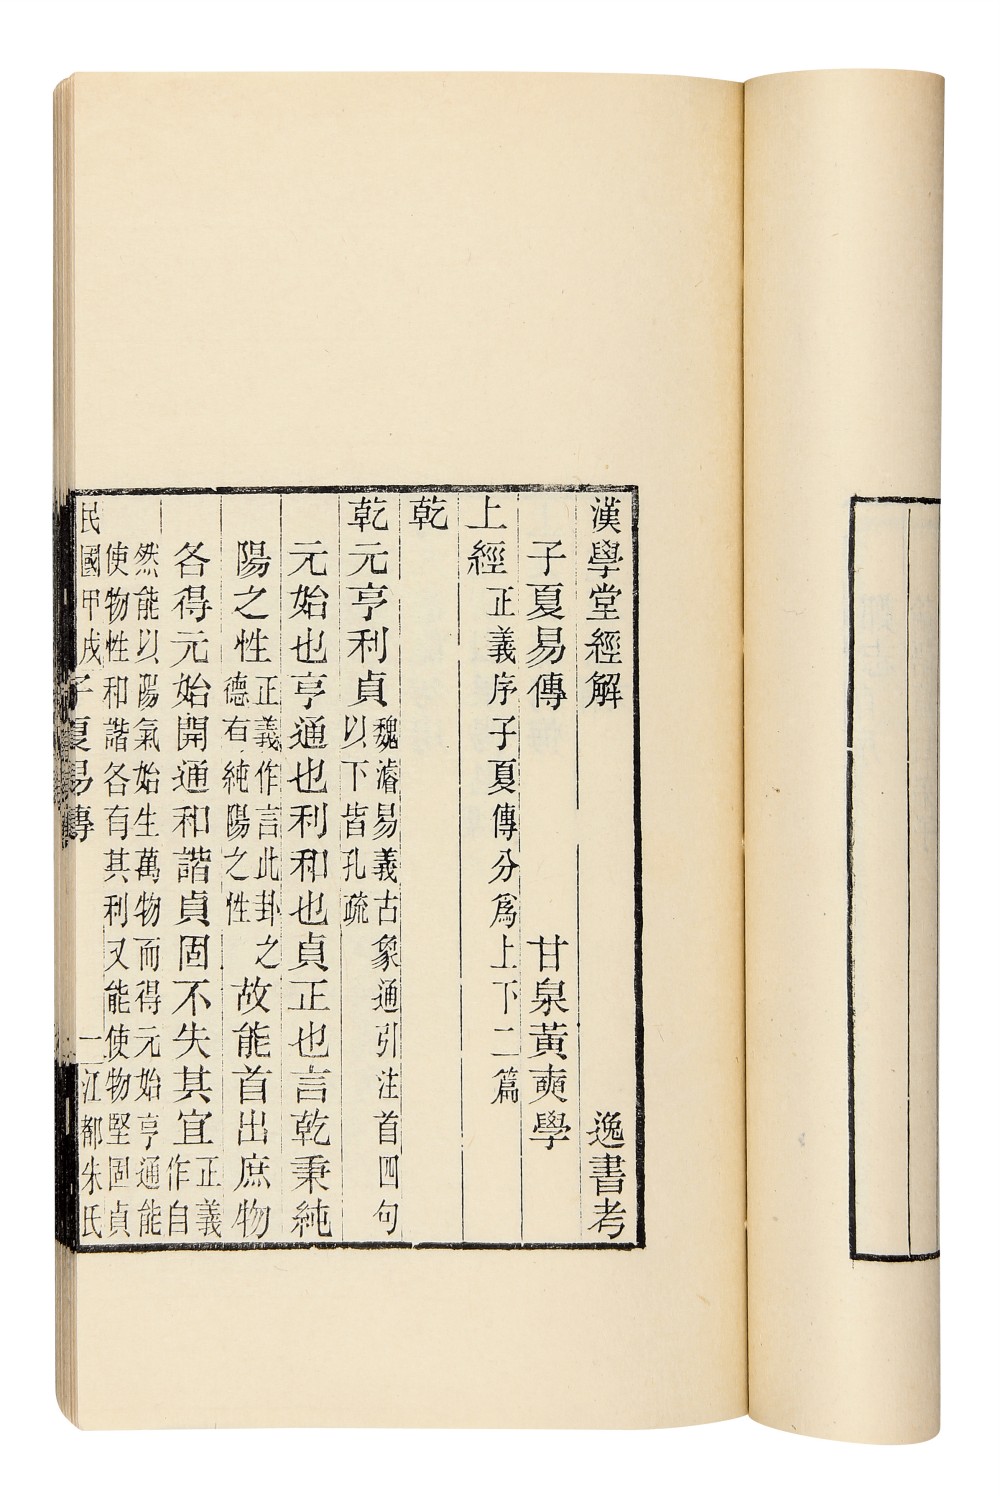 漢學堂經解 逸書考
子夏易傳 甘泉黃奭學
上經 正義序子夏傳分爲上下二篇
乾
乾元亨利貞 魏濬易義古象通引注首四句
以下皆孔疏
元始也亨通也利和也貞正也言乾秉純
陽之性 正義作言此卦之
德有純陽之性 故能首出庶物
各得元始開通和諧貞固不失其宜 正義
作自
然能以陽氣始生萬物而得元始亨通能
使物性和諧各有其利又能使物堅固貞
民國甲戌 子夏易傳 一 江都朱氏